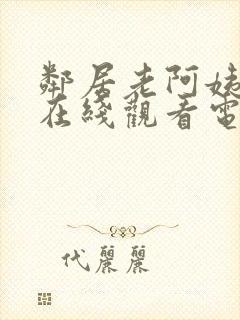 鄰居老阿姨
在綫觀看電
代麗麗